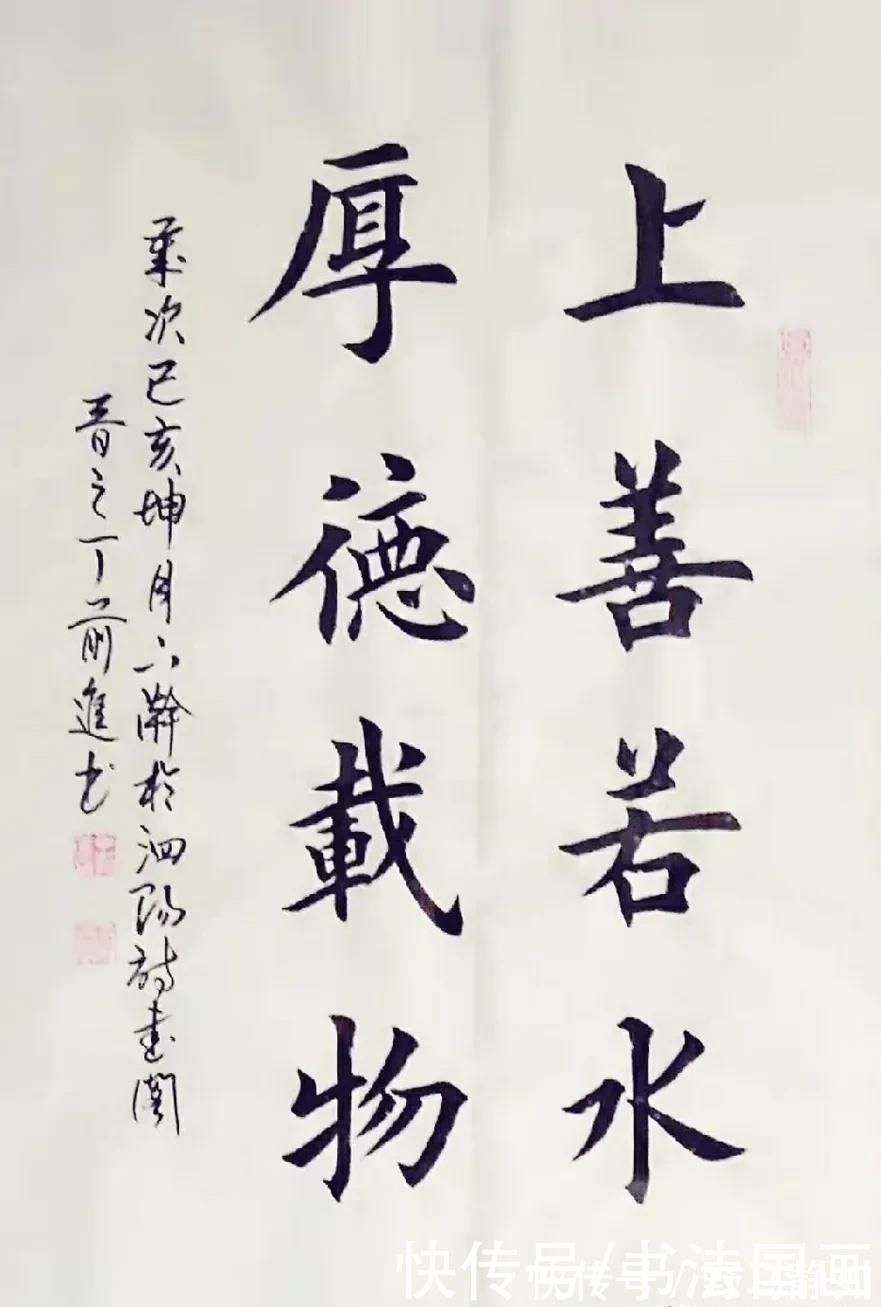 上善若水
厚德載物
歲次己亥坤月下澣於泗陽詩書閣
晉之丁前進書
快传号/书法国画